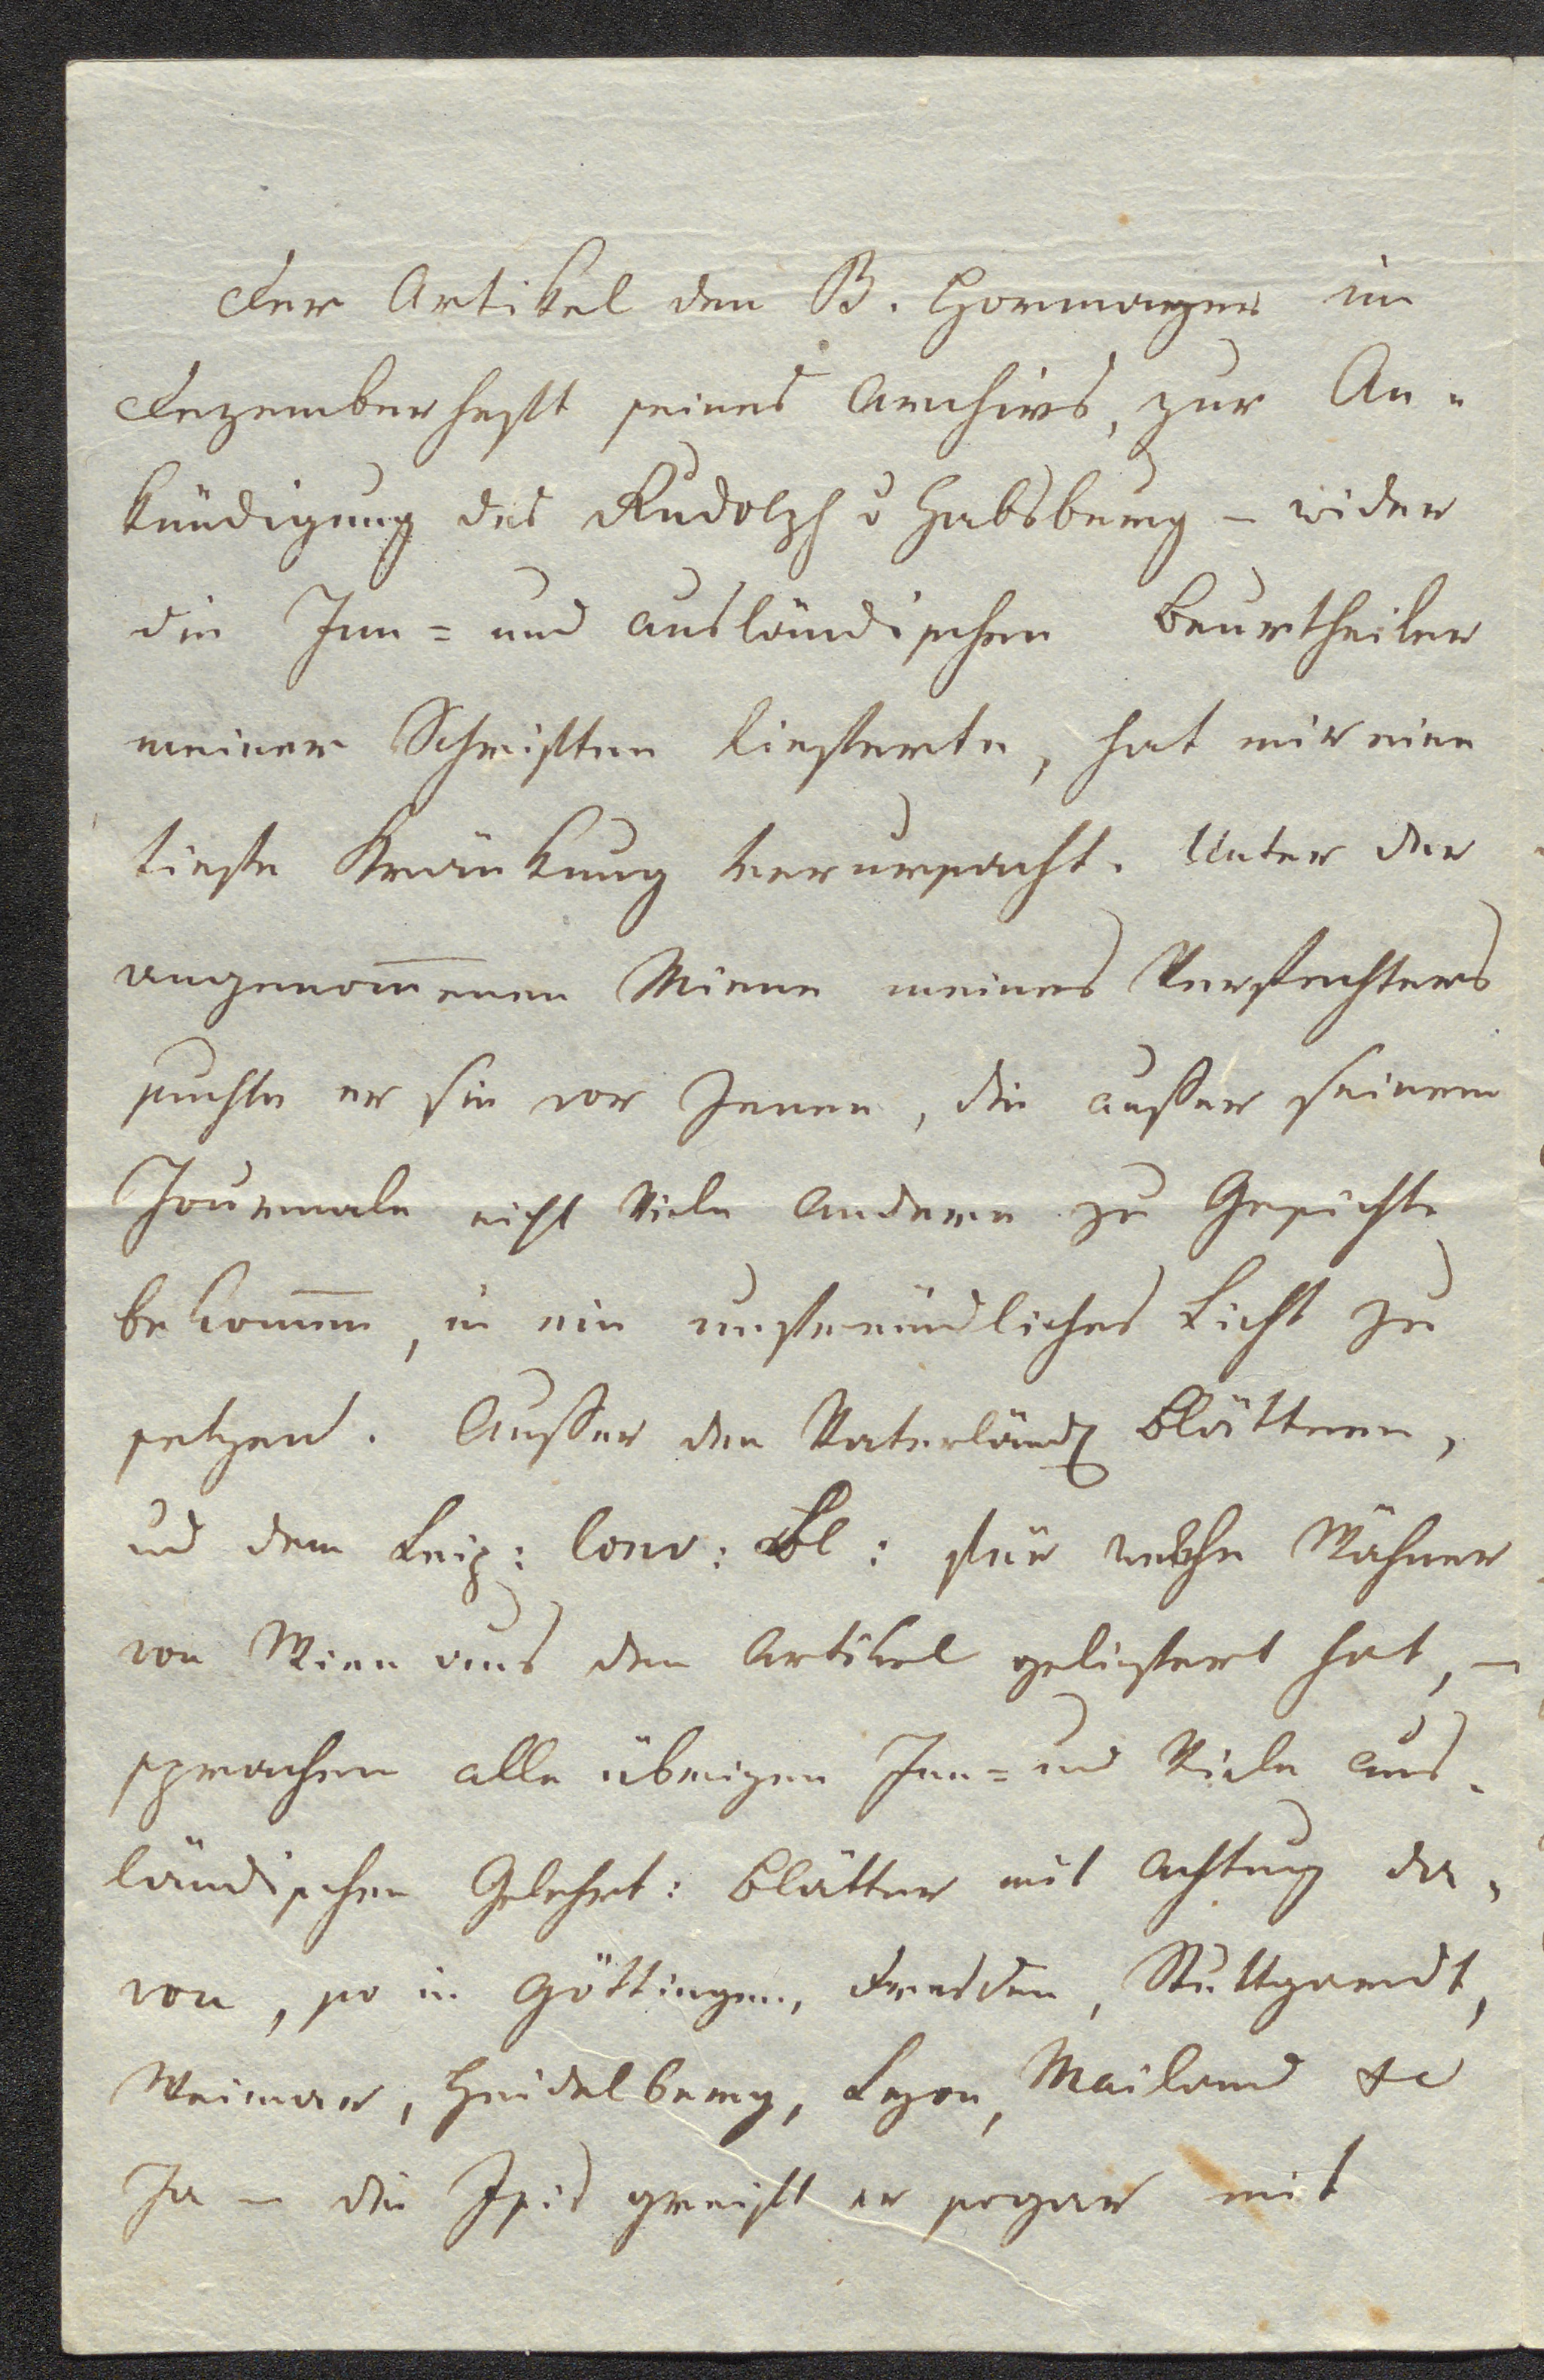 Der Artikel den B. Hormayer im
Dezemberheft seines Archivs, zur An-
kündigung des Rudolph v Habsburg – wider
die Inn= und ausländischen Beurtheiler
meiner Schriften lieferte, hat mir eine
tiefe Kränkung verursacht. Unter der
angenom̅enen Miene meines Verfechters
suchte er sie vor Jenen, die außer seinem
Journale nicht Viele Andere zu Gesichte
bekom̅en, in ein unfreundliches Licht zu
setzen. Außer den Vaterländ Blättern,
und dem Leip: Conv: Bl: für welche Wähner
von Wien aus den Artikel geliefert hat, –
sprachen alle übrigen Inn= und Viele aus-
ländischen Gelehrt: Blätter mit Achtung da-
von, so in Göttingen, Dresden, Stuttgardt,
Weimar, Heidelberg, Lyon, Mailand &c
Ja – die Isis greift er sogar mit